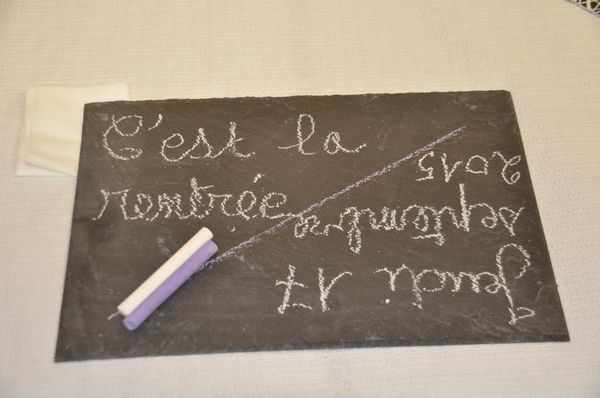 C'est la
rentrée
Jeudi 17
septembre
2015